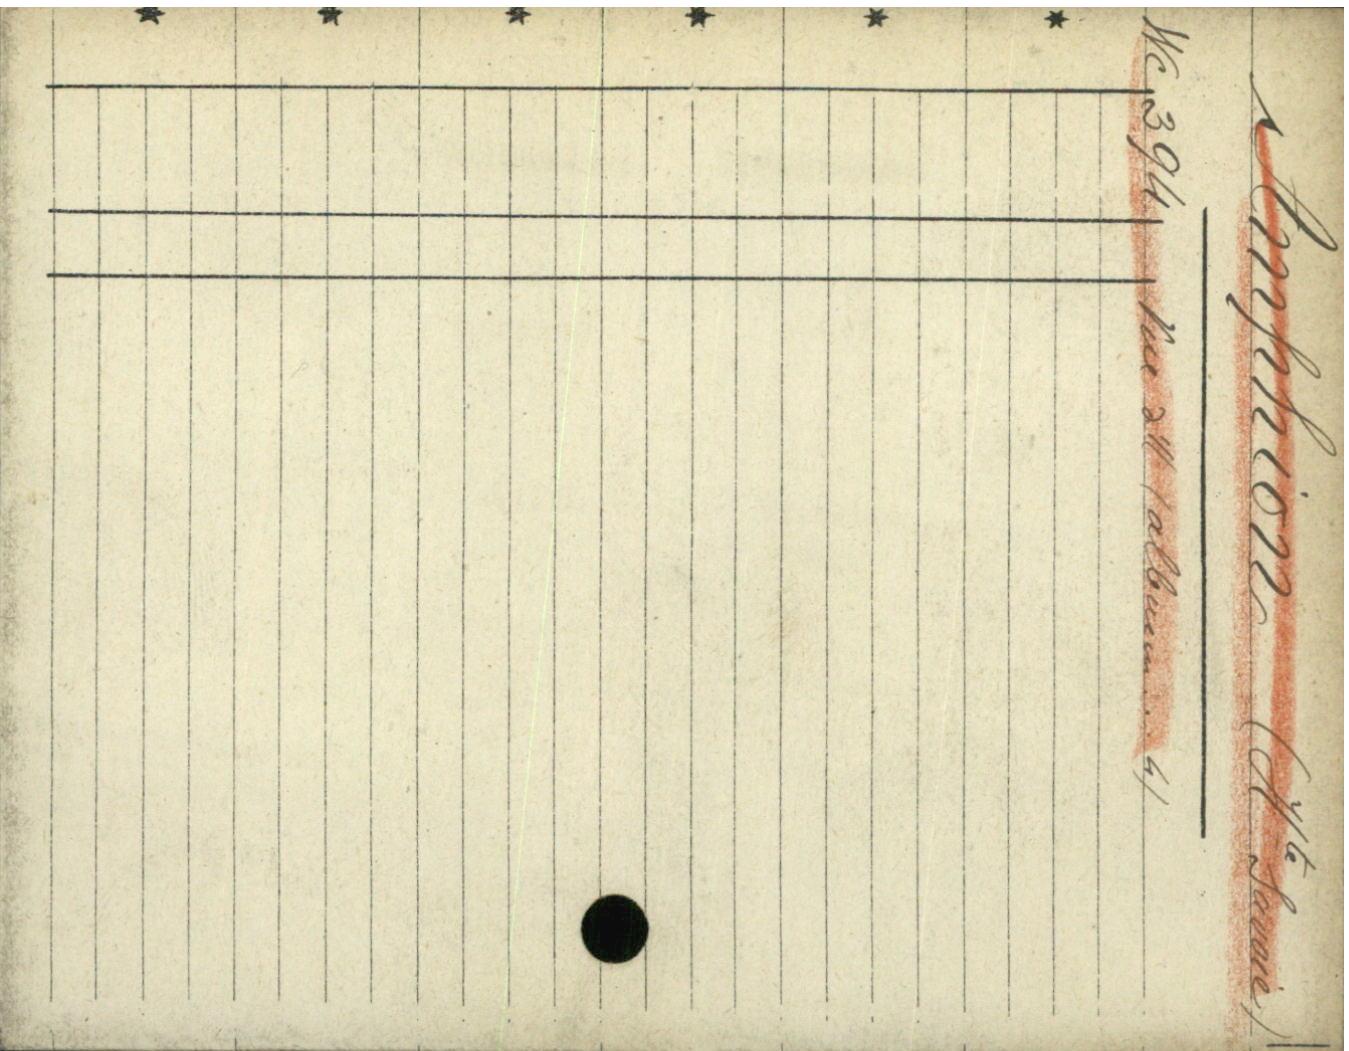 Amphion (Hte Savoie)
Wc 394 Vue d'" (album ... 4)